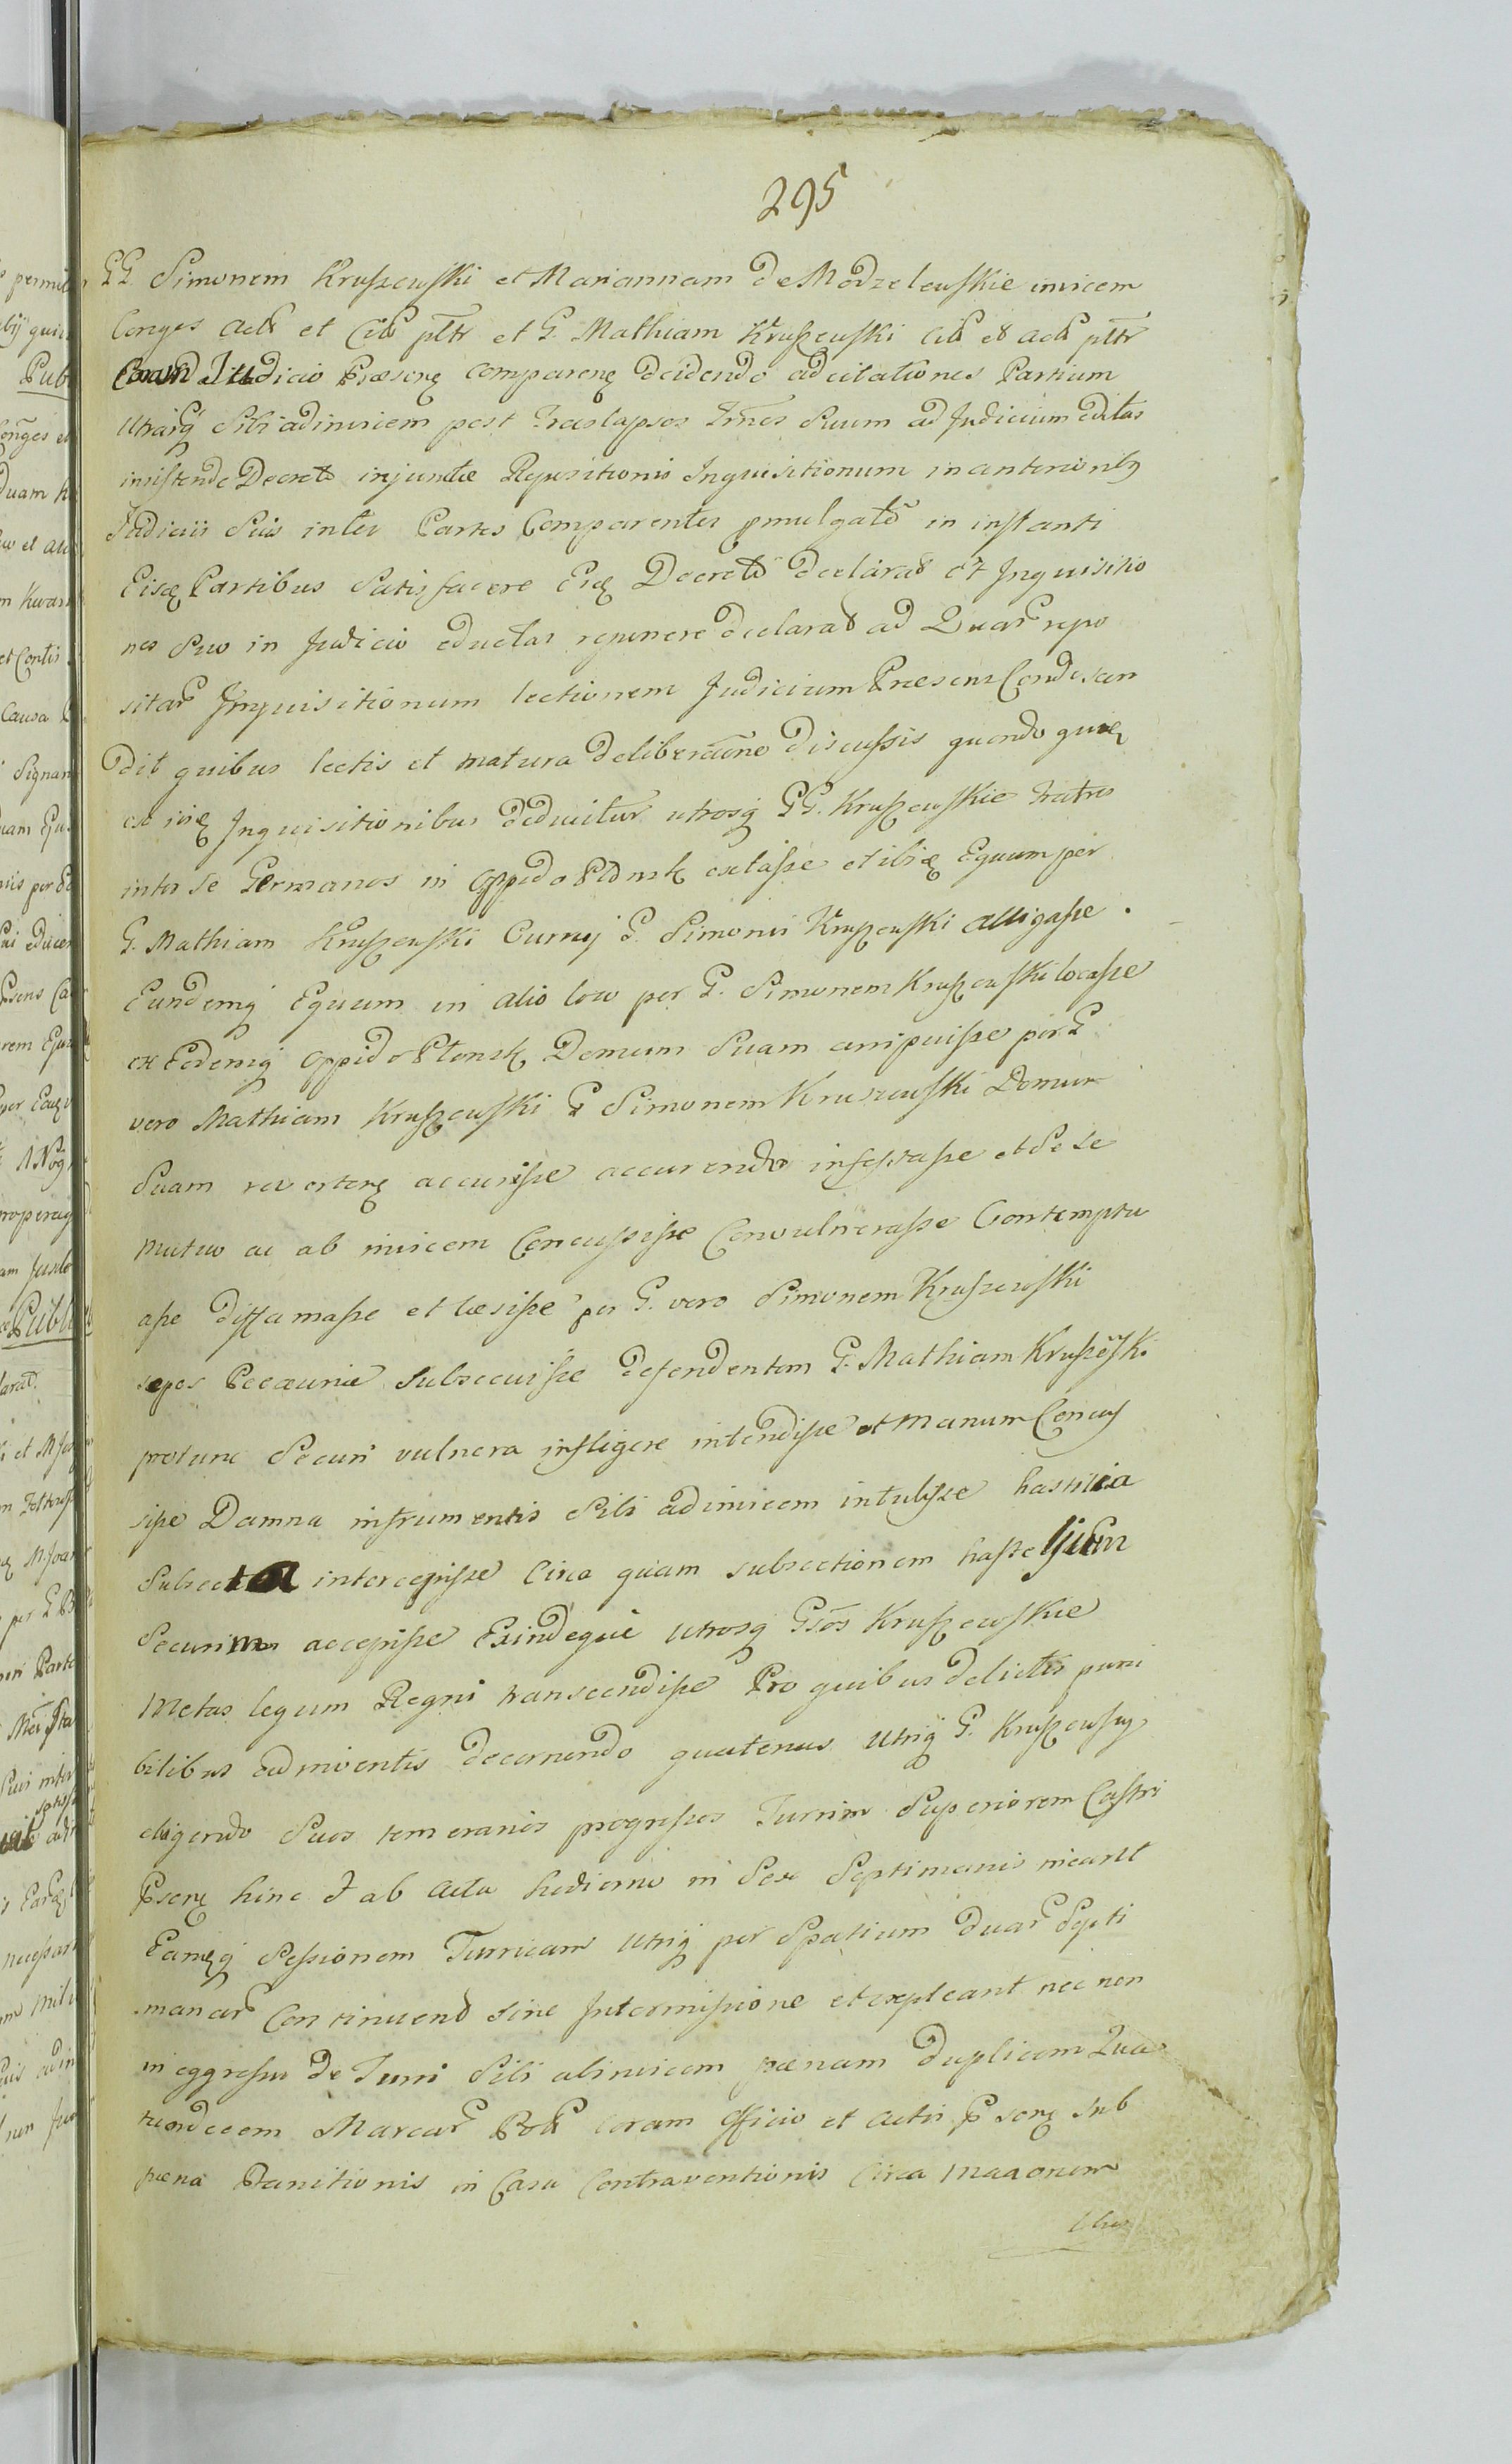 295
GG. Simonem Kruszewski et Mariannam de Modzelewskie invicem
Conges Act et Cit pltr et G. Mathiam Kruszewski Cit et act pltr
Coram Judicio Præsenę comparenę decidendo ad citationes Partium
utrarq sibi adinvicem post traslapsos Tmos Suum ad Judicium editas
insistendo Decreto injunctæ Repositionis Inquisitionum in anteriorib9
Judiciis Suis inter Partes Comparentes pmulgato in instanti
Eisdę Partibus Satisfacere Eidę Decreto declarat et Inquisitio
nes Suo in Judicio eductas reponere declarat ad Quar repo
sitar Inquisitionum lectionem Judicium Præsens Condescen
dit quibus lectis et matura deliberatione discussis quando quidę
ex iisdę Inquisitionibus deducitur utrosq GG. Kruszewskie Fratres
inter se Germanos in Oppido Plonsk extasse et ibidę Equum per
G. Mathiam Kruszewski Curruj G. Simonis Kruszewski alligasse.
Eundemq Equum in alio loco per G. Simonem Kruszewski locasse
ex Eodemq Oppido Plonsk Domum Suam arripuisse per G
vero Mathiam Kruszewski G Simonem Kruszewski Domum
Suam revertenę accurisse accurendo infestasse et de se
mutuo ac ab invicem Concussisse Convulnerasse Contemptu
asse diffamasse et læsisse per G. vero Simonem Kruszewski
sepes Subsecuisse defendentem G. Mathiam Kruszewski
protunc Securi vulnera infligere intendisse et manum Concus
sisse Damna instrumentis Sibi adinvicem intulisse hastilia
Subsecta intercepisse Circa quam subsectionem
Securim accepisse Exindeque utrosq Gsos Kruszewskie
Metas legum Regni transcendisse Pro quibus delictis puni
bilibus adinventis decernendo quatenus utriq G. Kruszewscy
eluendo Suos temerarios progressus Turrim Superiorem Castri
Psenę hinc et ab Actu hodierno in Sex Septimanis ineant
Eamdęq Sessionem Turricam utriq per Spatium duar Septi
manar Continuend sine Intermissione et expleant nec non
in eggressu de Turri Sibi abinvicem pænam duplicem Qua
tuordecem Marcar Pol coram Officio et Actis Psenę sub
pæna Banitionis in Casu Contraventionis Circa